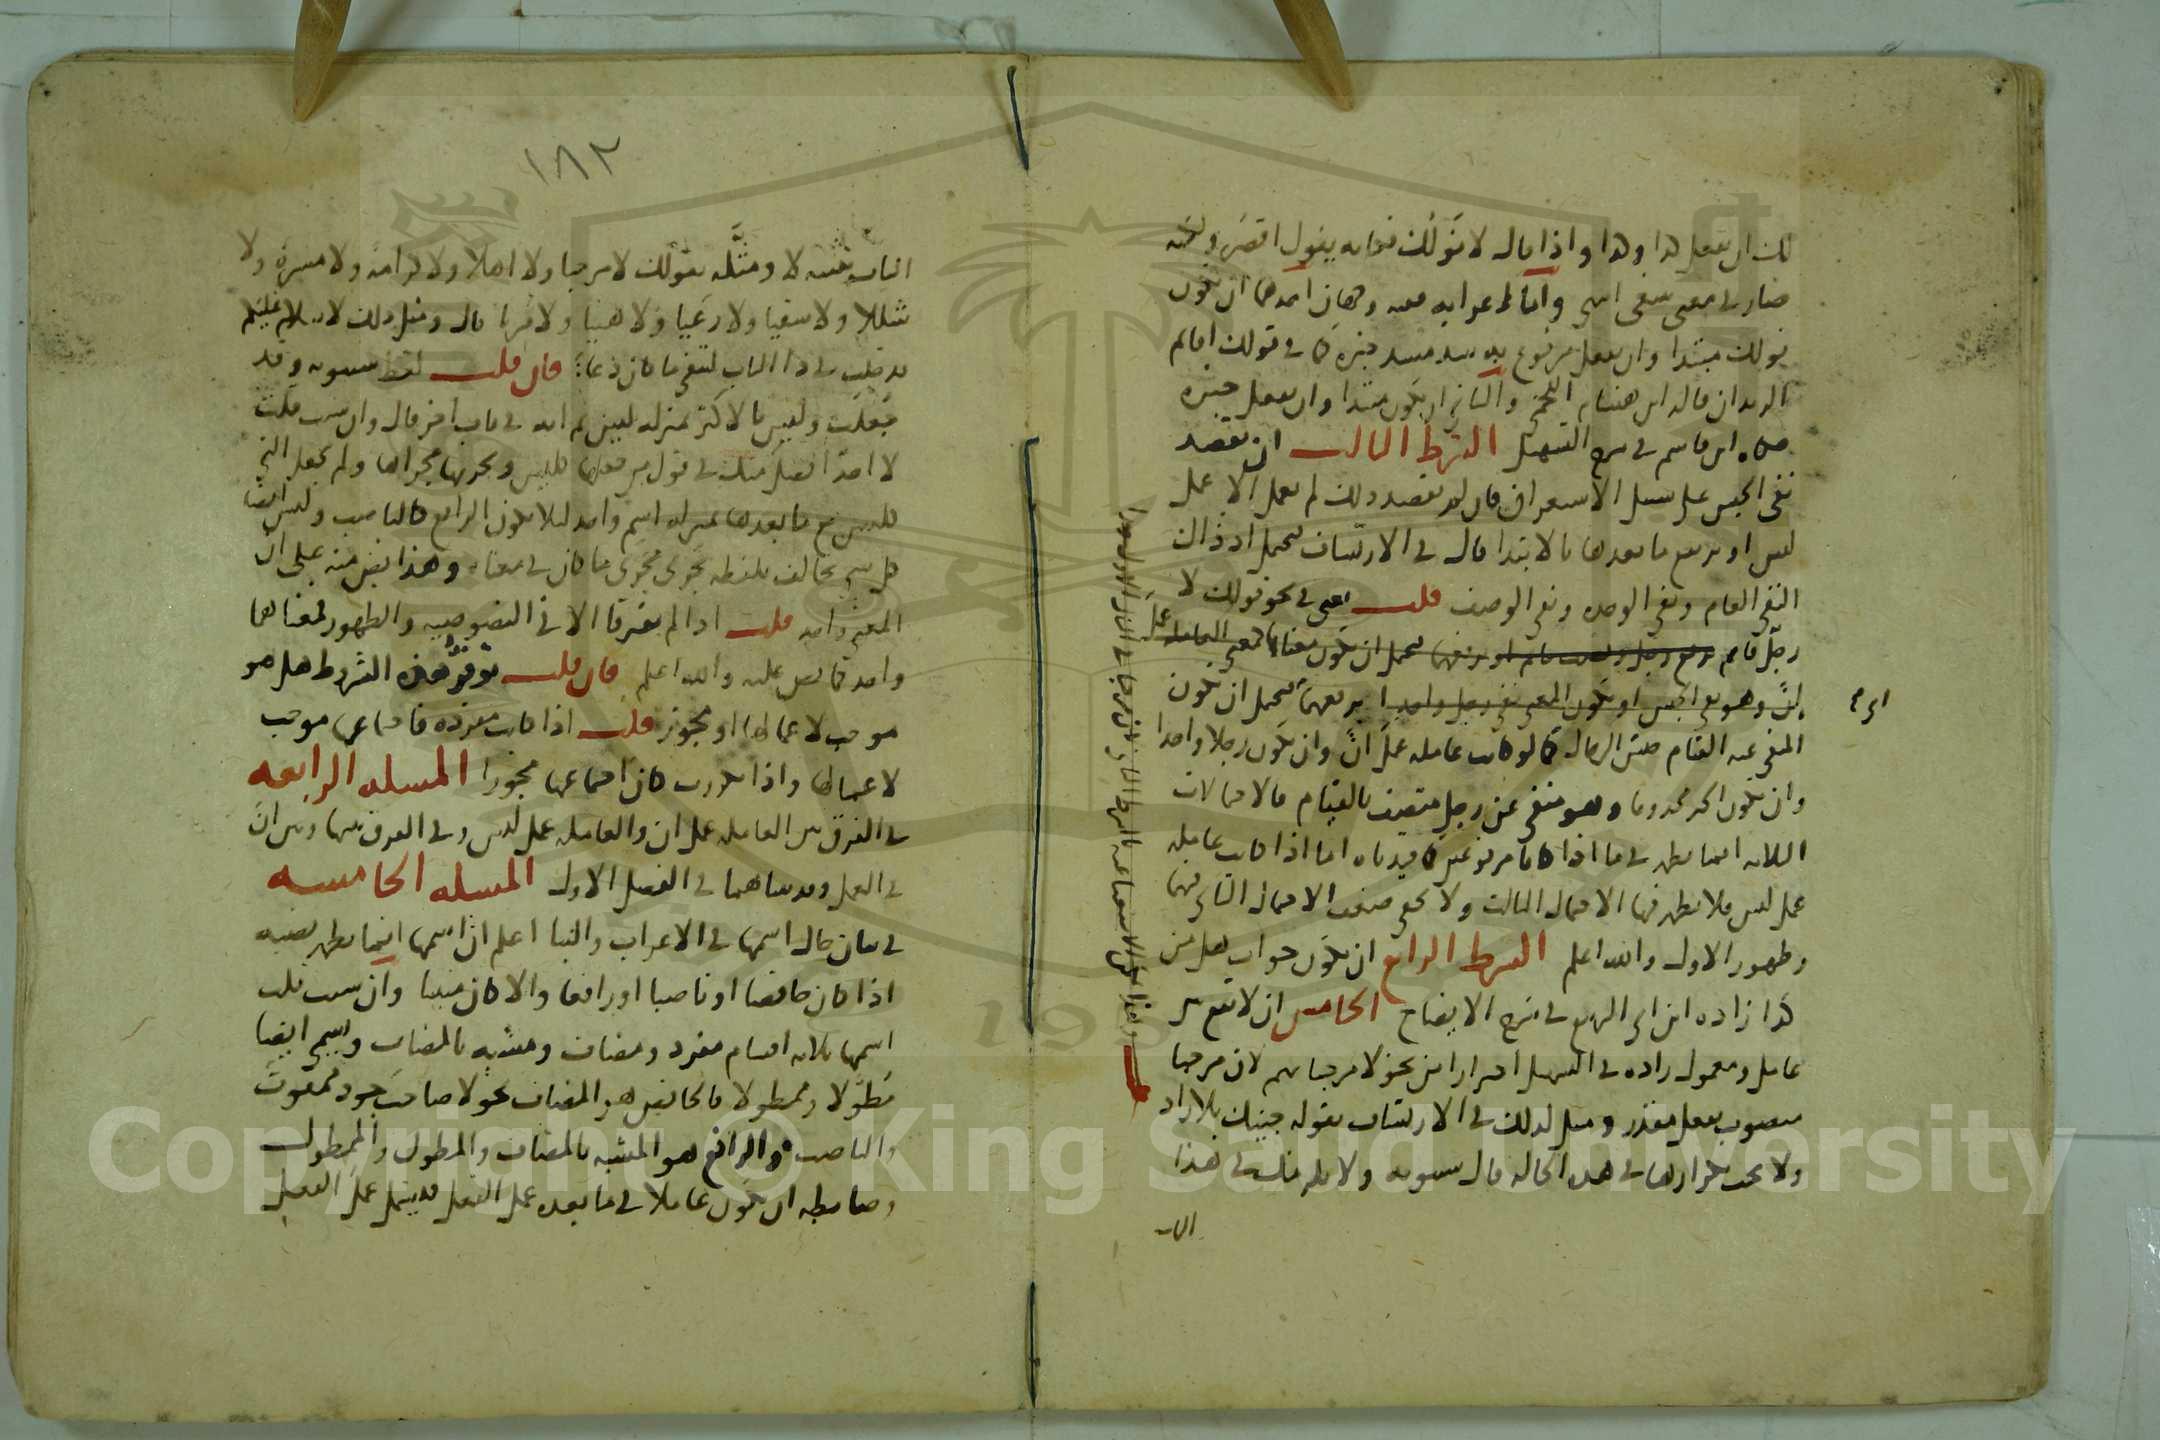 لك ان يفعل هذا وهذا واذا قال لا نولك فكانه يقول اقصر ولكنه
صار في معنى ينبغي انتهى واما اعرابه ففيه وجهان احدهما ان يكون
نولك مبتدا وان يفعل مرفوع به سد مسد خبره كما في قولك اقائم
الزيدان قاله ابن هشام اللخمي والثاني ان يكون مبتدا وان يفعل خبره
حكاه ابن قاسم في شرح التسهيل الشرط الثالث ان يقصد
نفي الجنس على سبيل الاستغراق فان لم يقصد ذلك لم يعمل الا عمل
ليس او يرفع ما بعدها بالابتدا قال في الارتشاف يحتمل اذ ذاك
النفي العام ونفي الوحده ونفي الوصف قلت يعني في نحو قولك لا
رجل قائم
يحتمل ان يكون
المنفي عنه القيام جنس الرجال كما لو كانت عامله عمل ان وان يكون رجلا واحدا
وان يكون اكثر محدودا وهو منفي عن رجل متصف بالقيام فالاحتمالات
الثلاثه انما تظهر في ما اذا كانا مرفوعين كما قيدناه اما اذا كانت عامله
عمل ليس فلا يظهر فيها الاحتمال الثالث ولا يخفى ضعف الاحتمال الثاني فيها
وظهور الاول والله اعلم الشرط الرابع ان يكون جواب هل من
كذا زاده ابن ابي الربيع في شرح الايضاح الخامس ان لا تقع بين
عامل ومعمول زاده في التسهيل احترازا من نحو لا مرحبا بهم لان مرحبا
منصوب بفعل مقدر ومثل لذلك في الارتشاف بقوله جيتك بلا زاد
ولا يجب تكرارها في هذه الحاله قال سيبويه ولا يلزمك في هذا
الباب
١٨٢
الباب تثنيه لا ومثله بقولك لا مرحبا ولا اهلا ولا كرامة ولا مسرة ولا
شللا ولا سقيا ولا رعيا ولا هنيا ولا مريا قال ومثل ذلك لا سلام عليكم
قد دخلت في ذا الباب لتنفي ما كان دعا فان قلت لفظ سيبويه وقد
جعلت وليس بالاكثر بمنزله ليس ثم انه في باب اخر قال وان شيت قلت
لا احد افضل منك في قول من جعلها كليس ويجريها مجراها ولم يجعل التي
كليس مع ما بعدها بمنزله اسم واحد ليلا يكون الرافع كالناصب وليس ايضا
كل شي يخالف بلفظه يجري مجرى ما كان في معناه وهذا نص منه على ان
المعنى واحد قلت اذا لم يفترقا الا في النصوصيه والظهور فمعناهما
واحد كما نص عليه والله اعلم فان قلت توفر هذه الشروط هل هو
موجب لاعمالها او مجوز قلت اذا كانت مفرده فاجتماعها موجب
لاعمالها واذا تكررت كان اجتماعها مجوزا المسله الرابعه
في الفرق بين العامله عمل ان والعامله عمل ليس وفي الفرق بينها وبين ان
في العمل وقد بيناهما في الفصل الاول المسله الخامسه
في بيان حال اسمها في الاعراب والبنا اعلم ان اسمها انما يظهر نصبه
اذا كان خافضا او ناصبا او رافعا والا كان مبنيا وان شيت قلت
اسمها ثلاثه اقسام مفرد ومضاف ومشبه بالمضاف ويسمى ايضا
مطولا وممطولا فالخافض هو المضاف نحو لا صاحب جود ممقوت
والناصب والرافع هو المشبه بالمضاف والمطول والممطول
وضابطه ان يكون عاملا في ما بعده عمل الفعل